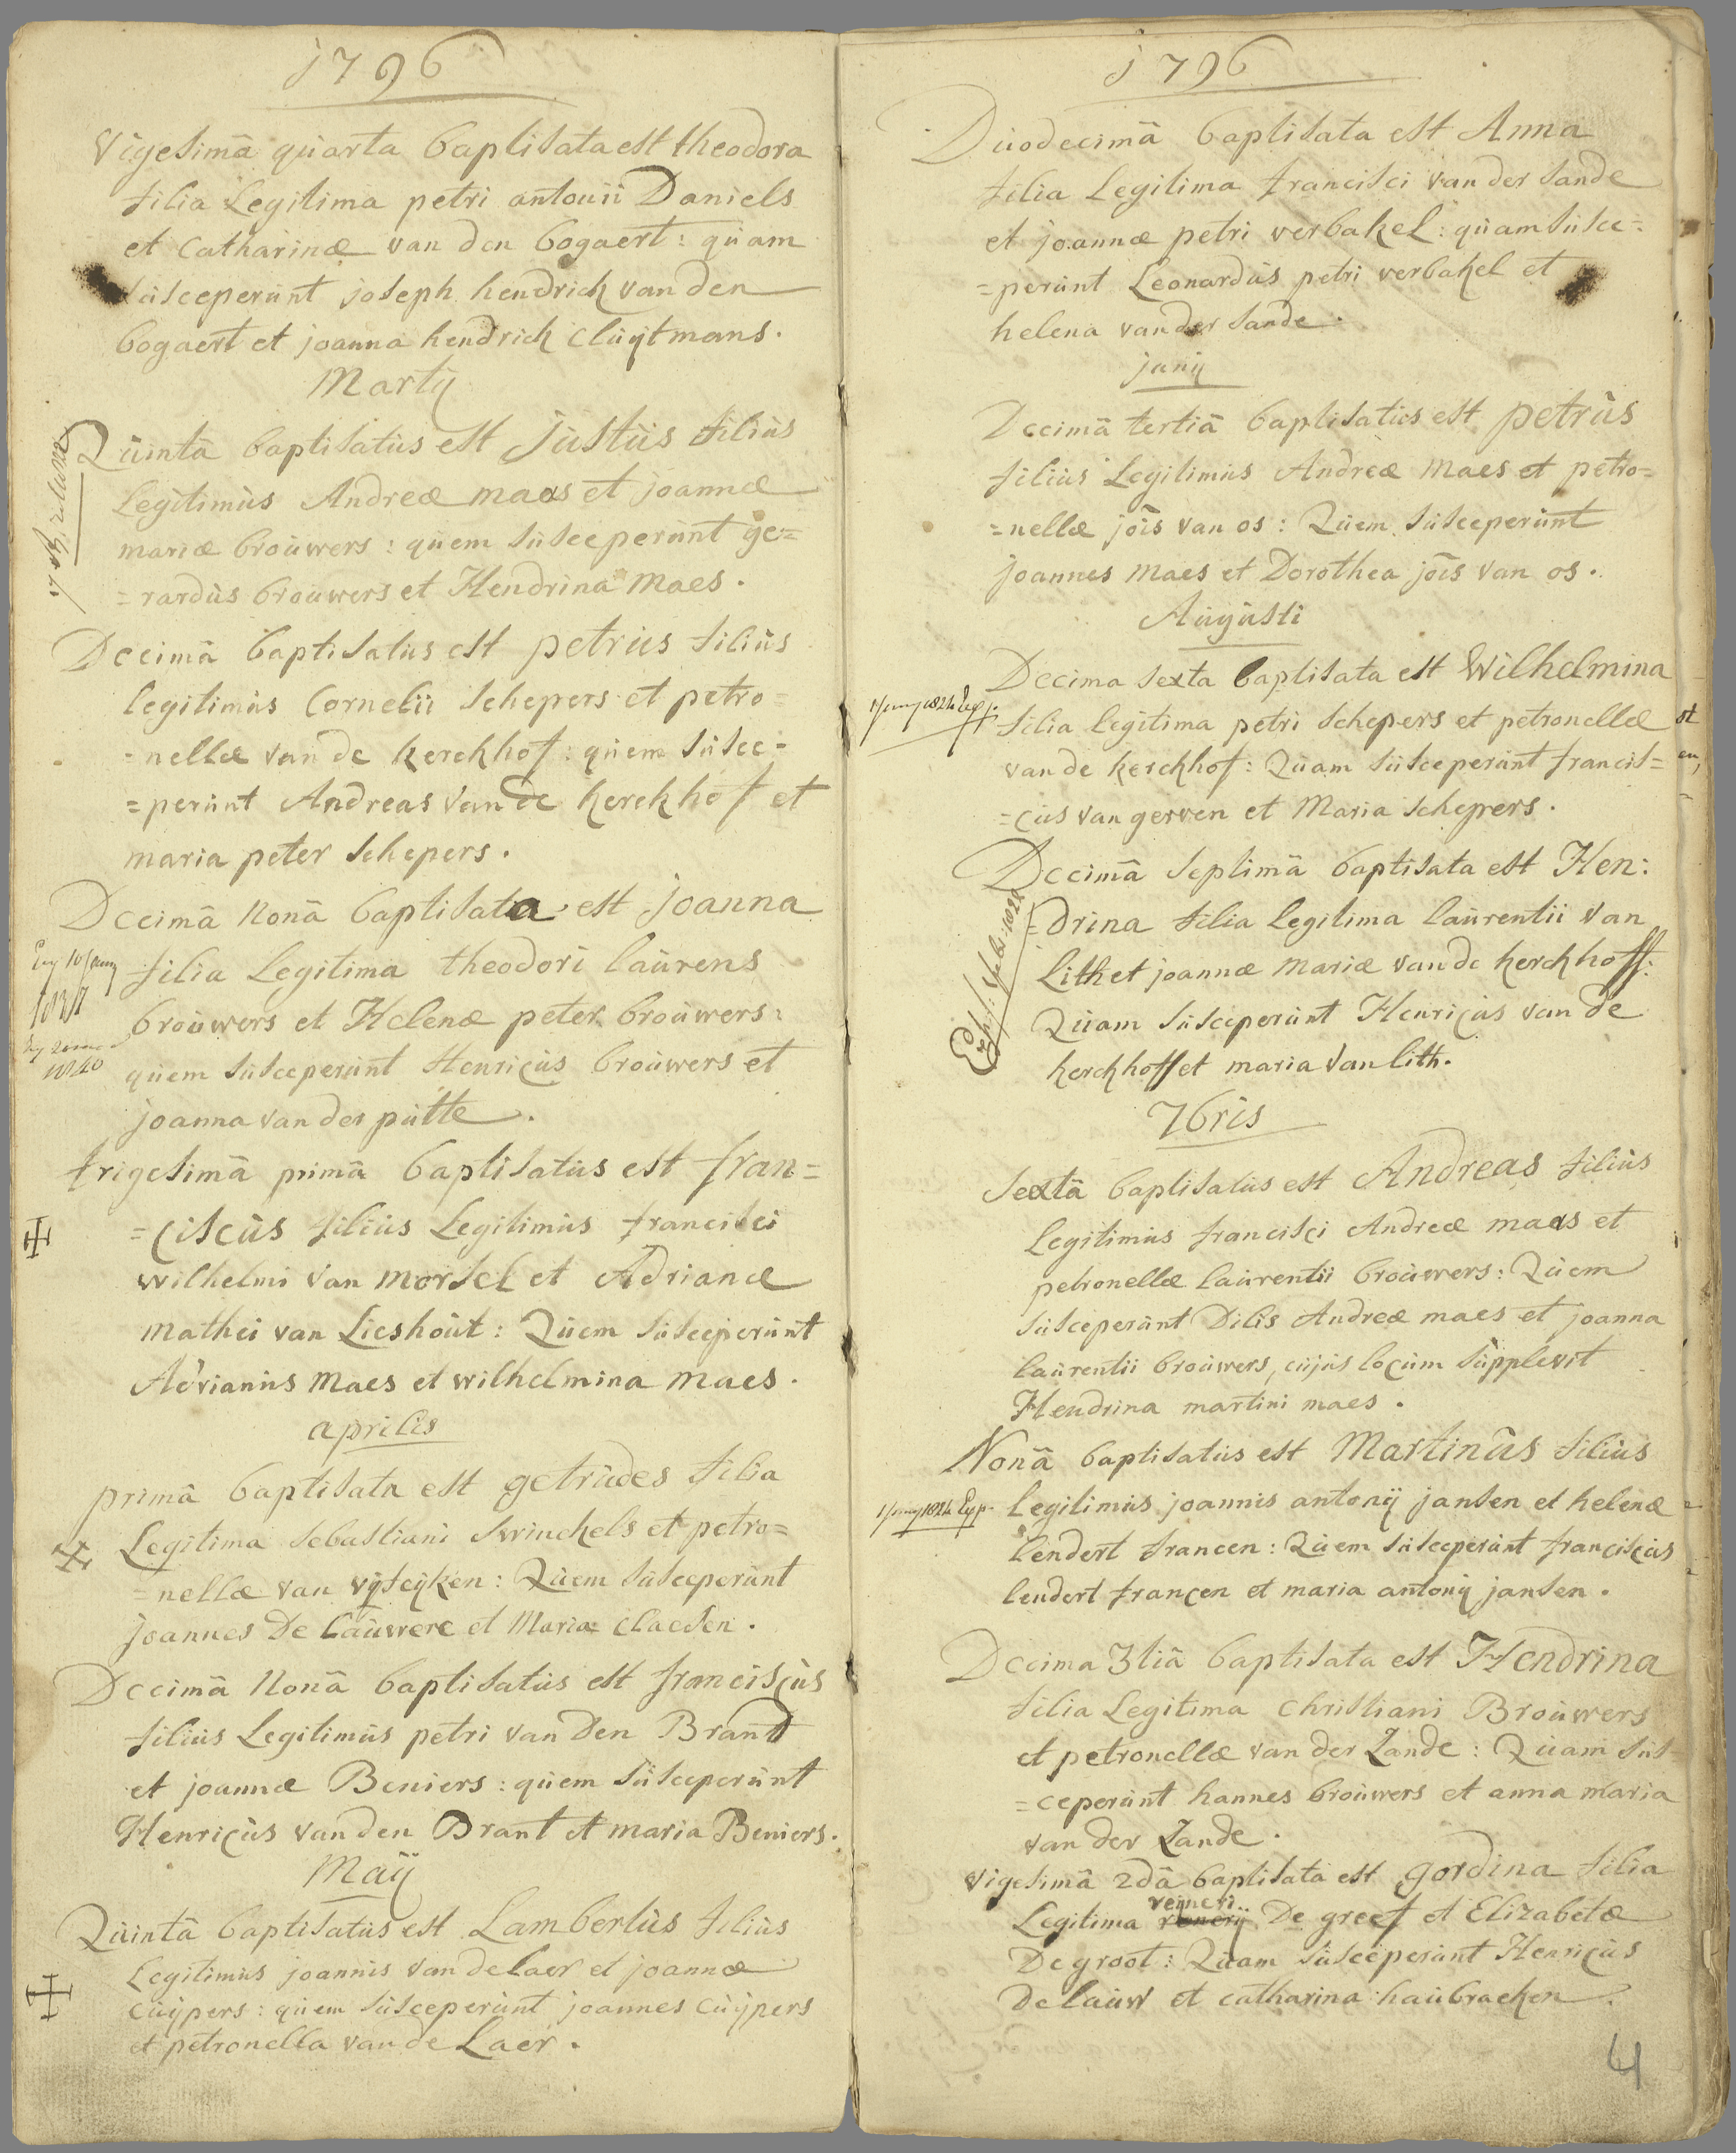 1796
Vigesimâ quarta baptisata est theodora
filia Legitima petri antonii Daniels
et Catharinæ van den bogaert: quam
susceperunt joseph hendrick van den
bogaert et joanna hendrick cluytmans.
Martij
Quintâ baptisatus est justus filius
Legitimus Andreæ maas et joannæ
mariæ brouwers: quem susceperunt ge=
=rardus brouwers et Hendrina maes.
Decimâ baptisatus est petrus filius
legitimus Cornelii schepers et petro=
=nellæ van de kerckhof: quem susce=
=perunt Andreas van de kerckhof et
maria peter schepers.
Decimâ nonâ baptisata est joanna
Exp 10 januy
1837
filia Legitima theodori laurens
brouwers et Helenæ peter brouwers:
1840
quem susceperunt Henricus brouwers et
joanna van der putte.
trigesimâ primâ baptisatus est fran=
=ciscus filius Legitimus francisci
wilhelmi van morsel et Adrianæ
mathei van Lieshout: Quem susceperunt
Adrianus maes et wilhelmina maes.
aprilis
primâ baptisata est getrudes filia
Legitima sebastiani swinckels et petro=
=nellæ van vijfeijken: Quem susceperunt
joannes De lauwere et Maria claesen.
Decimâ nonâ baptisatus est franciscus
filius Legitimus petri van Den Brant
et joannæ Beniers: quem susceperunt
Henricus van den Brant et maria Beniers.
Maij
Quintâ baptisatus est Lambertus filius
Legitimus joannis van de laer et joannæ
cuijpers: quem susceperunt joannes cuijpers
et petronella van de Laer.
1796
Duodecimâ baptisata est Anna
filia Legitima francisci van der sande
et joannæ petri verbakel: quam susce=
=perunt Leonardus petri verbakel et
helena van der sande.
junij
Decimâ tertiâ baptisatus est petrus
filius Legitimus Andreæ maes et petro=
=nellæ jois van os: Quem susceperunt
joannes maes et Dorothea jois van os.
Augusti
Decima sexta baptisata est Wilhelmina
1 juny 1824 Exp.
filia legitima petri schepers et petronellæ
van de kerckhof: Quam susceperunt francis=
=cus van gerven et Maria schepers.
Decimâ septimâ baptisata est Hen:
=drina filia legitima laurentii van
Lith et joannæ mariæ van de kerckhoff:
Quam susceperunt Henricus van de
kerckhoff et maria van lith.
7bris
Sextâ baptisatus est Andreas filius
Legitimus francisci Andreæ maas et
petronellæ laurentii brouwers: Quem
susceperunt Dilis Andreæ maes et joanna
laurentii brouwers, cujus locum supplevit
Hendrina martini maes.
Nonâ baptisatus est Martinus filius
1 juny 1824 Exp.
legitimus joannis antonij jansen et helenæ
lendert francen: Quem susceperunt franciscus
lendert francen et maria antonij jansen.
Decima 3tiâ baptisata est Hendrina
filia Legitima christiani Brouwers
et petronellæ van der Zande: Quam sus=
=ceperunt hannes brouwers et anna maria
van der Zande.
Vigesimâ 2dâ baptisata est gordina filia
reineri
Legitima renerij De greef et Elizabetæ
De groot: Quam susceperunt Henricus
De lauw et catharina haubraeken.
4